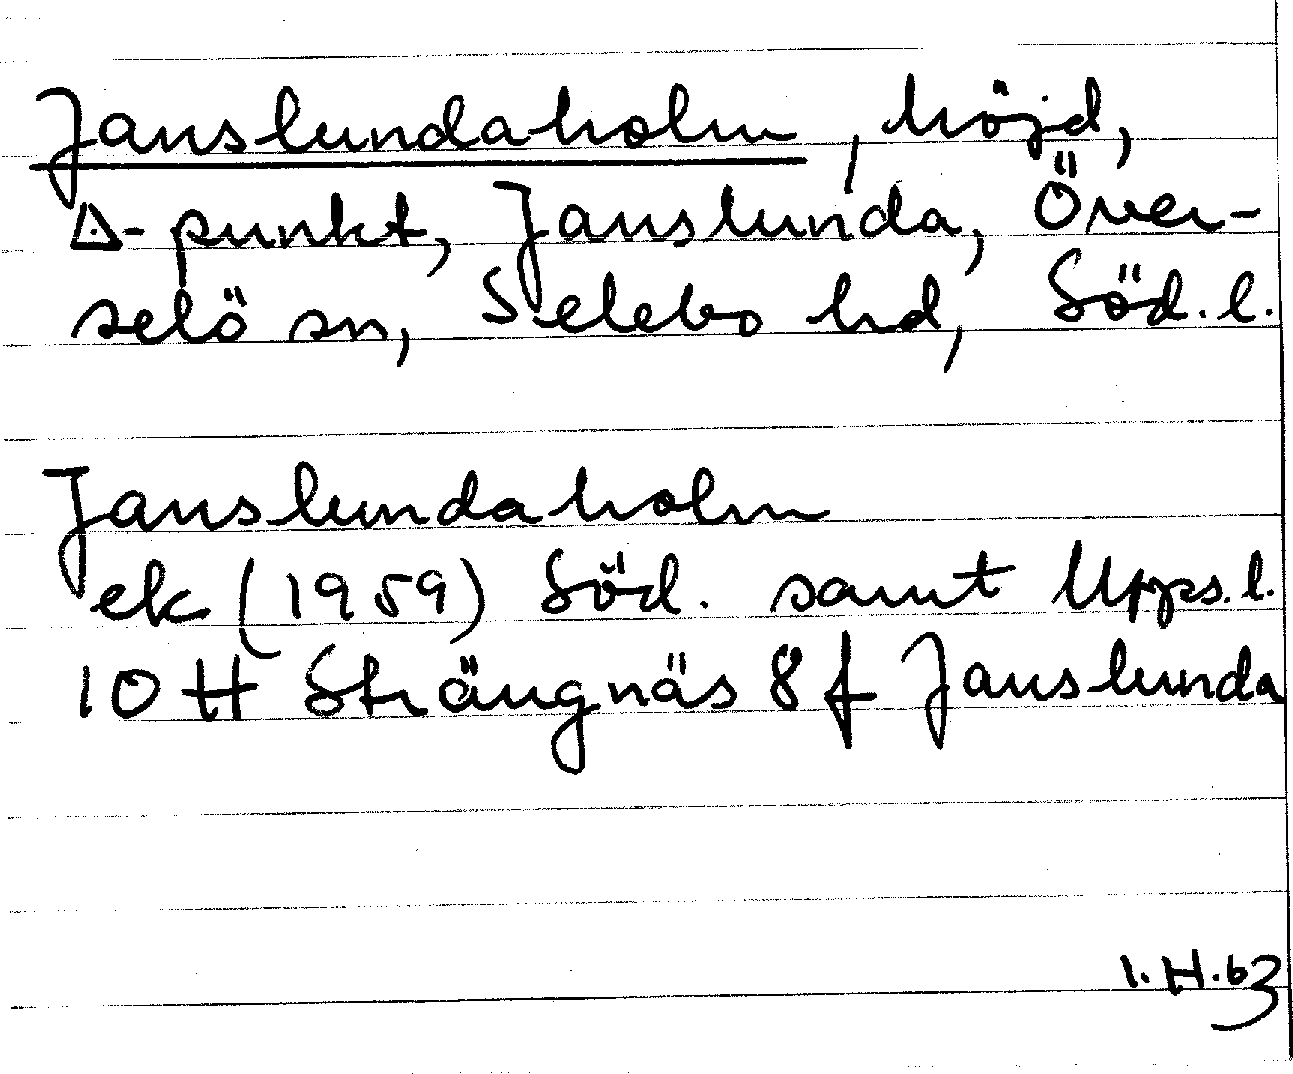 Janslundaholm, höjd,
△-punkt, Janslunda, Över-
selö sn, Selebo hd, Söd. l.
Janslundaholm
ek (1959) Söd. samt Upps. l.
10 H Strängnäs 8 f Janslunda
I. H. 63